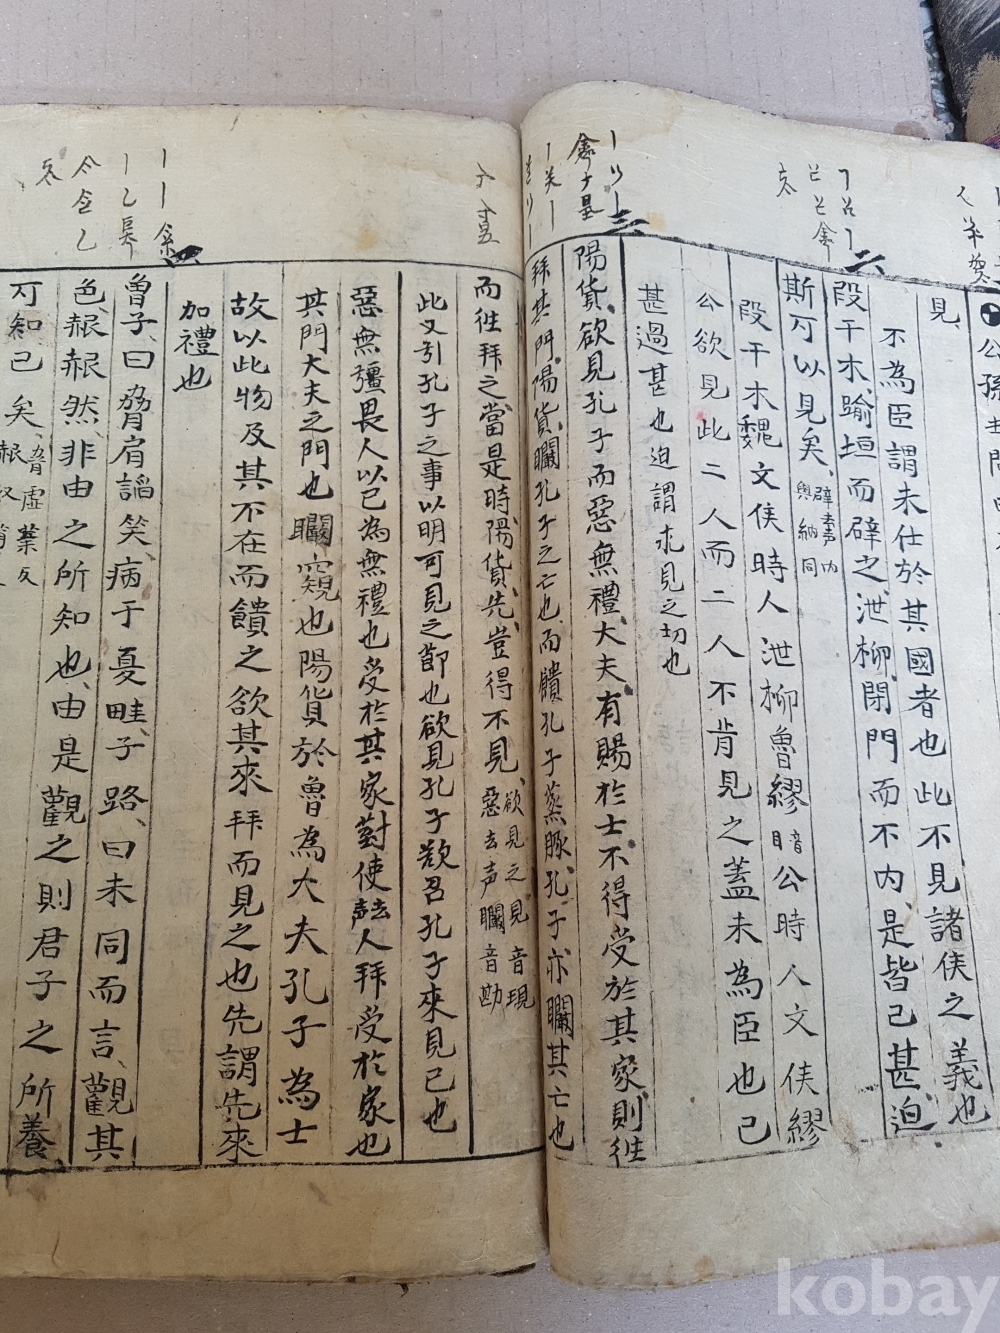 公孫丑問曰不
見、
不為臣謂未仕於其國者也此不見諸侯之義也
段干木、踰垣而辟之、泄柳、閉門而不内、是皆已甚、迫、
斯可以見矣、辟去声内與納同
段干木魏文侯時人泄柳魯繆音公時人文侯繆
公欲見此二人而二人不肯見之蓋未為臣也已
甚過甚也迫謂求見之切也
三
陽貨、欲見孔子而惡無禮、大夫、有賜於士、不得受於其家、則徃
拜其門、陽貨、矙孔子之亡也、而饋孔子蒸豚、孔子、亦矙其亡也
而徃拜之、當是時、陽貨、先、豈得不見、欲見之見音現惡去声矙音勘
此又引孔子之事以明可見之節也欲見孔子欲召孔子來見已也
惡無禮畏人以已為無禮也受於其家對使去声人拜受於家也
其門大夫之門也矙窺也陽貨於魯為大夫孔子為士
故以此物及其不在而饋之欲其來拜而見之也先謂先來
加禮也
四
曾子、曰脅肩諂笑、病于夏畦、子路、曰未同而言、觀其
色、赧赧然、非由之所知也、由是觀之則君子之所養、
可知已矣、